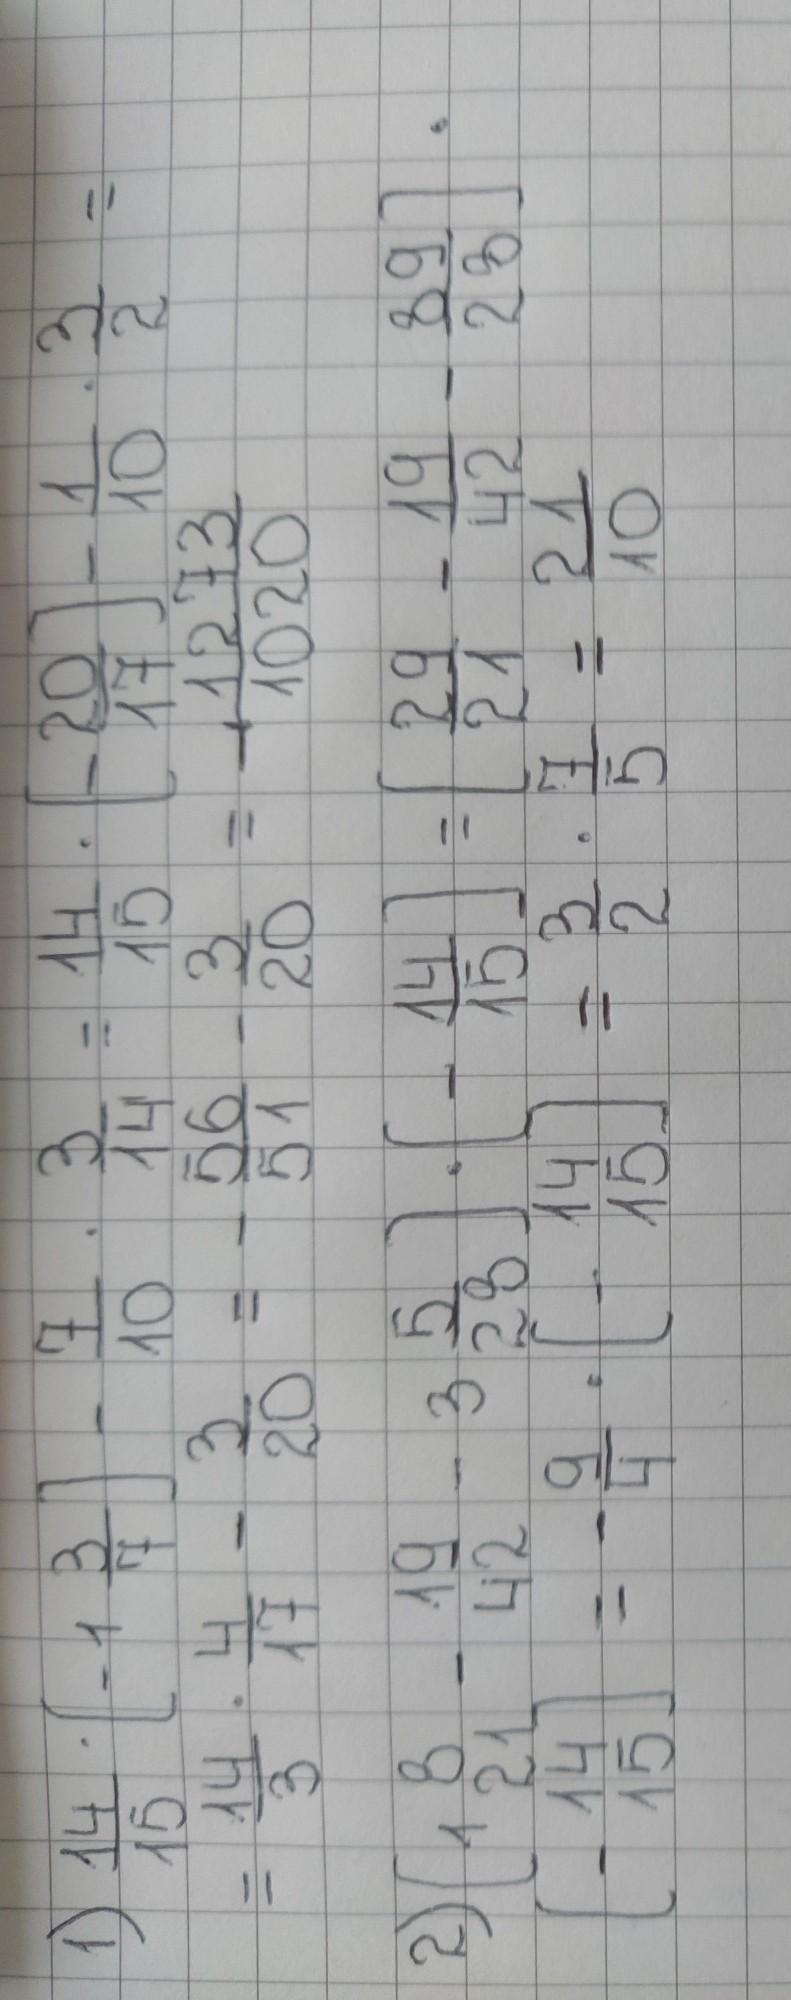 1) 14/15 · (-1 3/7) - 7/10 · 3/14 = 14/15 · (-20/17) - 1/10 · 3/2 =
= 14/3 · 4/17 - 3/20 = - 56/51 - 3/20 = - 1273/1020
2) (1 8/21 - 19/42 - 3 5/28) · (- 14/15) = (29/21 - 19/42 - 89/28) ·
(- 14/15) = - 9/4 · (- 14/15) = 3/2 · 7/5 = 21/10